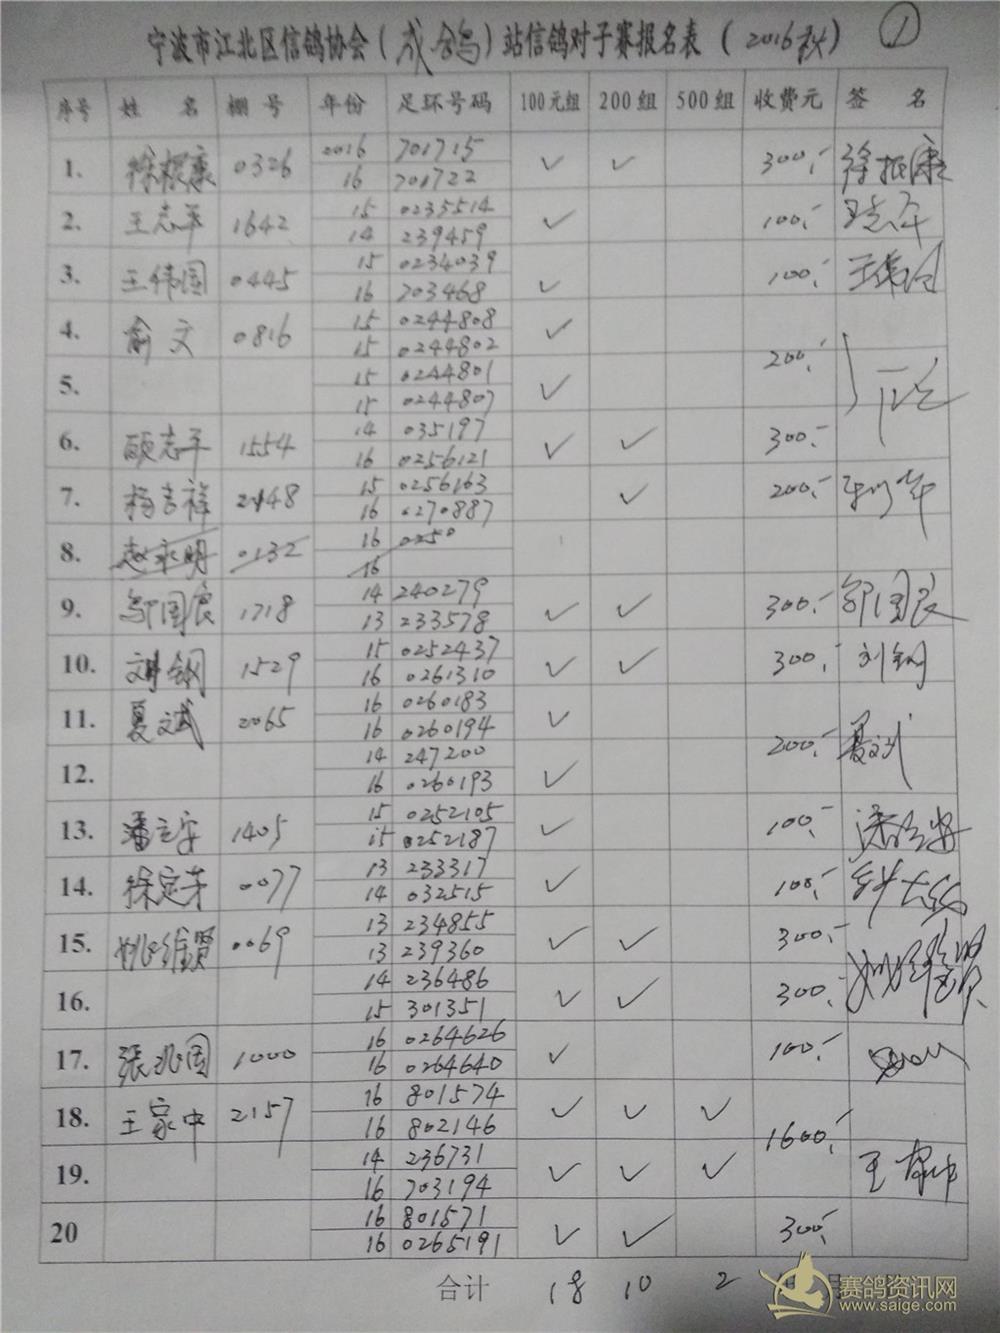 宁波市江北区信鸽协会（成鸽）站信鸽对子赛报名表（2016秋） ①
序号 姓 名 棚 号 年份 足环号码 100元组 200组 500组 收费元 签 名
1. 徐根康 0326 2016 701715 ✓ ✓ 300.-
16 701722
2. 王志平 1642 15 0235514 ✓ 100.-
14 239459
3. 王伟国 0445 15 0234039 ✓ 100.-
16 703468
4. 俞文 0816 15 0244808 ✓ 200.-
15 0244802
5. 15 0244801 ✓
15 0244807
6. 顾志平 1554 14 035197 ✓ ✓ 300.-
16 0256121
7. 杨吉祥 2148 15 0256163 ✓ 200.-
16 0270887
8. 赵永明 0132 16 0250
16
9. 邬国良 1718 14 240279 ✓ ✓ 300.- 邬国良
13 233578
10. 刘钢 1529 15 0252437 ✓ ✓ 300.- 刘钢
16 0261310
11. 夏文斌 2065 16 0260183 ✓ 200.-
16 0260194
12. 14 247200 ✓
16 0260193
13. 潘立安 1405 15 0252105 ✓ 100.-
15 0252187
14. 徐定芳 0077 13 233317 ✓ 100.-
14 032515
15. 姚维贤 0069 13 234855 ✓ ✓ 300.- 姚维贤
13 239360
16. 14 236486 ✓ ✓ 300.-
15 301351
17. 張兆国 1000 16 0264626 ✓ 100.-
16 0264640
18. 王家中 2157 16 801574 ✓ ✓ ✓ 1600.-
16 802146
19. 14 236731 ✓ ✓ ✓
16 703194
20 16 801571 ✓ ✓ 300.-
16 0265191
合计 18 10 2 月
赛鸽资讯网
www.saige.com